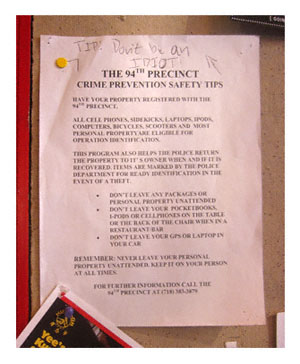 TIP: Don't be an
IDIOT!
THE 94TH PRECINCT
CRIME PREVENTION SAFETY TIPS
HAVE YOUR PROPERTY REGISTERED WITH THE
94TH PRECINCT.
ALL CELL PHONES, SIDEKICKS, LAPTOPS, IPODS,
COMPUTERS, BICYCLES, SCOOTERS AND MOST
PERSONAL PROPERTYARE ELIGIBLE FOR
OPERATION IDENTIFICATION.
THIS PROGRAM ALSO HELPS THE POLICE RETURN
THE PROPERTY TO IT'S OWNER WHEN AND IF IT IS
RECOVERED. ITEMS ARE MARKED BY THE POLICE
DEPARTMENT FOR READY IDENTIFICATION IN THE
EVENT OF A THEFT.
• DON'T LEAVE ANY PACKAGES OR
PERSONAL PROPERTY UNATTENDED
• DON'T LEAVE YOUR POCKETBOOKS,
I-PODS OR CELLPHONES ON THE TABLE
OR THE BACK OF THE CHAIR WHEN IN A
RESTAURANT/BAR
• DON'T LEAVE YOUR GPS OR LAPTOP IN
YOUR CAR
REMEMBER: NEVER LEAVE YOUR PERSONAL
PROPERTY UNATTENDED. KEEP IT ON YOUR PERSON
AT ALL TIMES.
FOR FURTHER INFORMATION CALL THE
94TH PRECINCT AT (718) 383-3879
Yee's